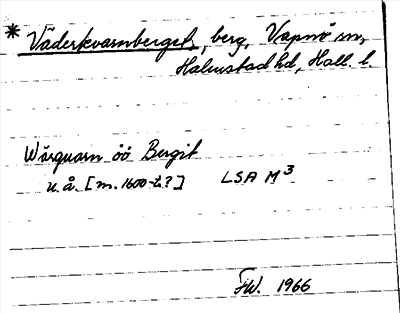 * Väderkvarnberget, berg, Vapnö sn,
Halmstad hd, Hall. l.
Wärquarn öö Bergit
u.å. [m. 1600-t.?] LSA M3
FW. 1966